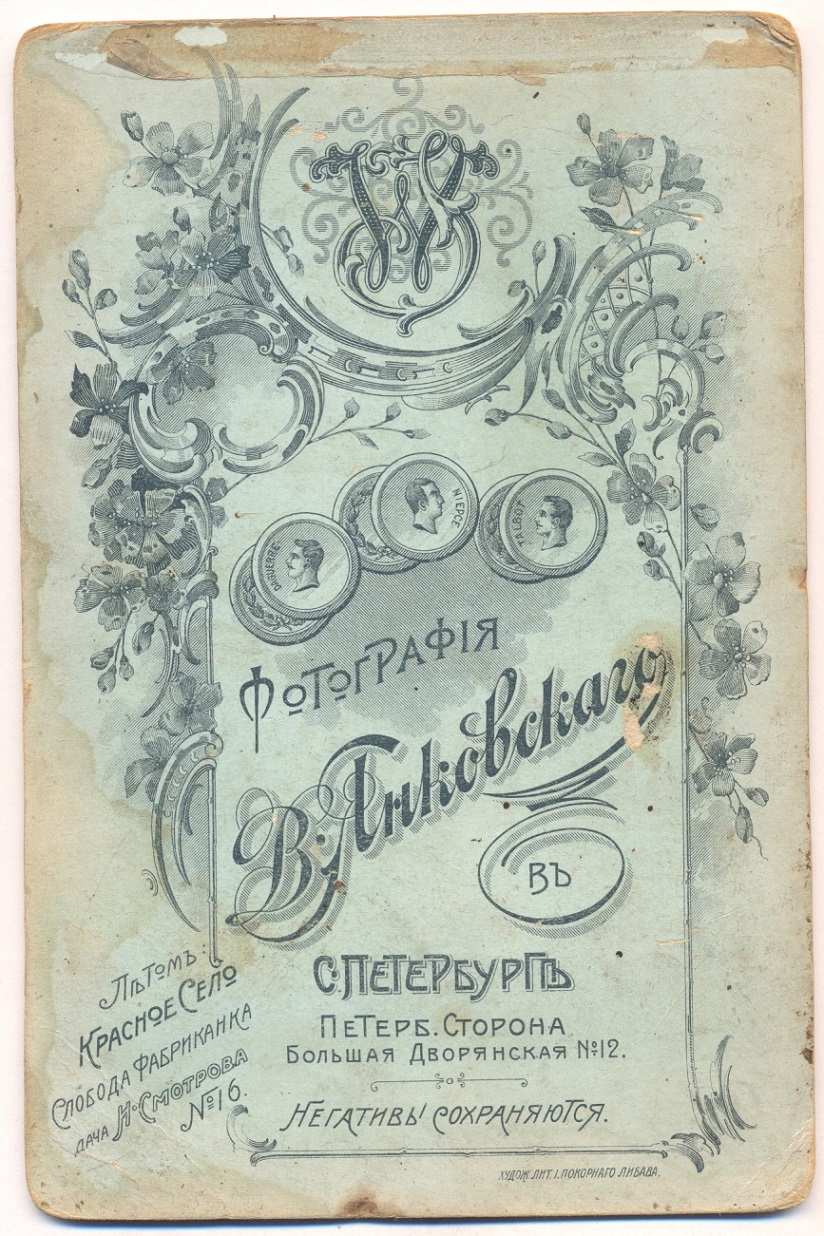 W
DAGUERRE
NIEPCE
TALBOT
ФОТОГРАФІЯ
В. Янковскаго
ВЪ
С.ПЕТЕРБУРГѢ
ПЕТЕРБ. СТОРОНА
БОЛЬШАЯ ДВОРЯНСКАЯ №12.
НЕГАТИВЫ СОХРАНЯЮТСЯ.
ЛѢТОМЪ:
КРАСНОЕ СЕЛО
СЛОБОДА ФАБРИКАНКА
ДАЧА Н. СМОТРОВА
№16.
ХУДОЖ. ЛИТ. І. ПОКОРНАГО ЛИБАВА.